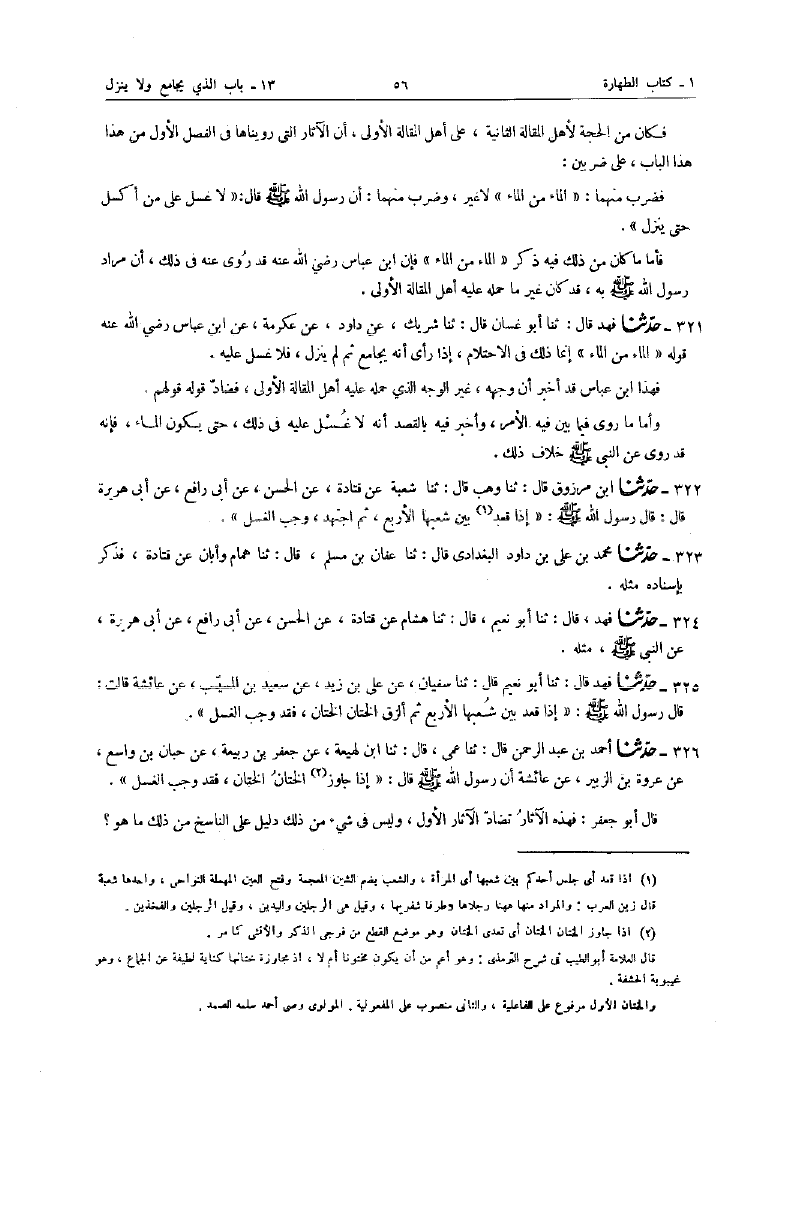 ١ ـ كتاب الطهارة ٥٦ ١٣ ـ باب الذي يجامع ولا ينزل
فكان من الحجة لأهل المقالة الثانية ، على أهل المقالة الأولى ، أن الآثار التى رويناها فى الفصل الأول من هذا
هذا الباب ، على ضربين :
فضرب منهما : « الماء من الماء » لاغير ، وضرب منهما : أن رسول الله ﷺ قال:« لا غسل على من أكسل
حتى ينزل » .
فأما ماكان من ذلك فيه ذكر « الماء من الماء » فإن ابن عباس رضي الله عنه قد رُوى عنه فى ذلك ، أن مراد
رسول الله ﷺ به ، قد كان غير ما حمله عليه أهل المقالة الأولى .
٣٢١ ـ حدّثنا فهد قال : ثنا أبو غسان قال : ثنا شريك ، عن داود ، عن عكرمة ، عن ابن عباس رضي الله عنه
قوله « الماء من الماء » إنما ذلك فى الاحتلام ، إذا رأى أنه يجامع ثم لم ينزل ، فلا غسل عليه .
فهذا ابن عباس قد أخبر أن وجهه ، غير الوجه الذي حمله عليه أهل المقالة الأولى ، فضادّ قوله قولهم .
وأما ما روى فيما بين فيه الأمر ، وأخبر فيه بالقصد أنه لا غُسْل عليه فى ذلك ، حتى يكون الماء ، فإنه
قد روى عن النبي ﷺ خلاف ذلك .
٣٢٢ ـ حدّثنا ابن مرزوق قال : ثنا وهب قال : ثنا شعبة عن قتادة ، عن الحسن ، عن أبى رافع ، عن أبى هريرة
قال : قال رسول الله ﷺ : « إذا قعد(١) بين شعبها الأربع ، ثم اجتهد ، وجب الغسل » .
٣٢٣ ـ حدّثنا محمد بن على بن داود البغدادى قال : ثنا عفان بن مسلم ، قال : ثنا همام وأبان عن قتادة ، فذكر
بإسناده مثله .
٣٢٤ ـ حدّثنا فهد ، قال : ثنا أبو نعيم ، قال : ثنا هشام عن قتادة ، عن الحسن ، عن أبى رافع ، عن أبى هريرة ،
عن النبي ﷺ ، مثله .
٣٢٥ ـ حدّثنا فهد قال : ثنا أبو نعيم قال : ثنا سفيان ، عن على بن زيد ، عن سعيد بن المسيّب ، عن عائشة قالت :
قال رسول الله ﷺ : « إذا قعد بين شُعبها الأربع ثم ألزق الختان الختان ، فقد وجب الغسل » .
٣٢٦ ـ حدّثنا أحمد بن عبد الرحمن قال : ثنا عمى ، قال : ثنا ابن لهيعة ، عن جعفر بن ربيعة ، عن حبان بن واسع ،
عن عروة بن الزبير ، عن عائشة أن رسول الله ﷺ قال : « إذا جاوز(٢) الختانُ الختان ، فقد وجب الغسل » .
قال أبو جعفر : فهذه الآثارُ تضادّ الآثار الأول ، وليس فى شيء من ذلك دليل على الناسخ من ذلك ما هو ؟
(١) اذا قعد أى جلس أحدكم بين شعبها أى المرأة ، والشعب بضم الشين المعجمة وفتح العين المهملة النواحى ، واحدها شعبة
قال زين العرب : والمراد منها ههنا رجلاها وطرفا شفريها ، وقيل هى الرجلين واليدين ، وقيل الرجلين والفخذين .
(٢) اذا جاوز الختان الختان أى تعدى الختان وهو موضع القطع من فرجى الذكر والأنثى كما مر .
قال العلامة أبوالطيب فى شرح الترمذى : وهو أعم من أن يكون مختونا أم لا ، اذ مجاوزة ختانها كناية لطيفة عن الجماع ، وهو
غيبوبة الحشفة .
والختان الأول مرفوع على الفاعلية ، والثانى منصوب على المفعولية . المولوى وصى أحمد سلمه الصمد .